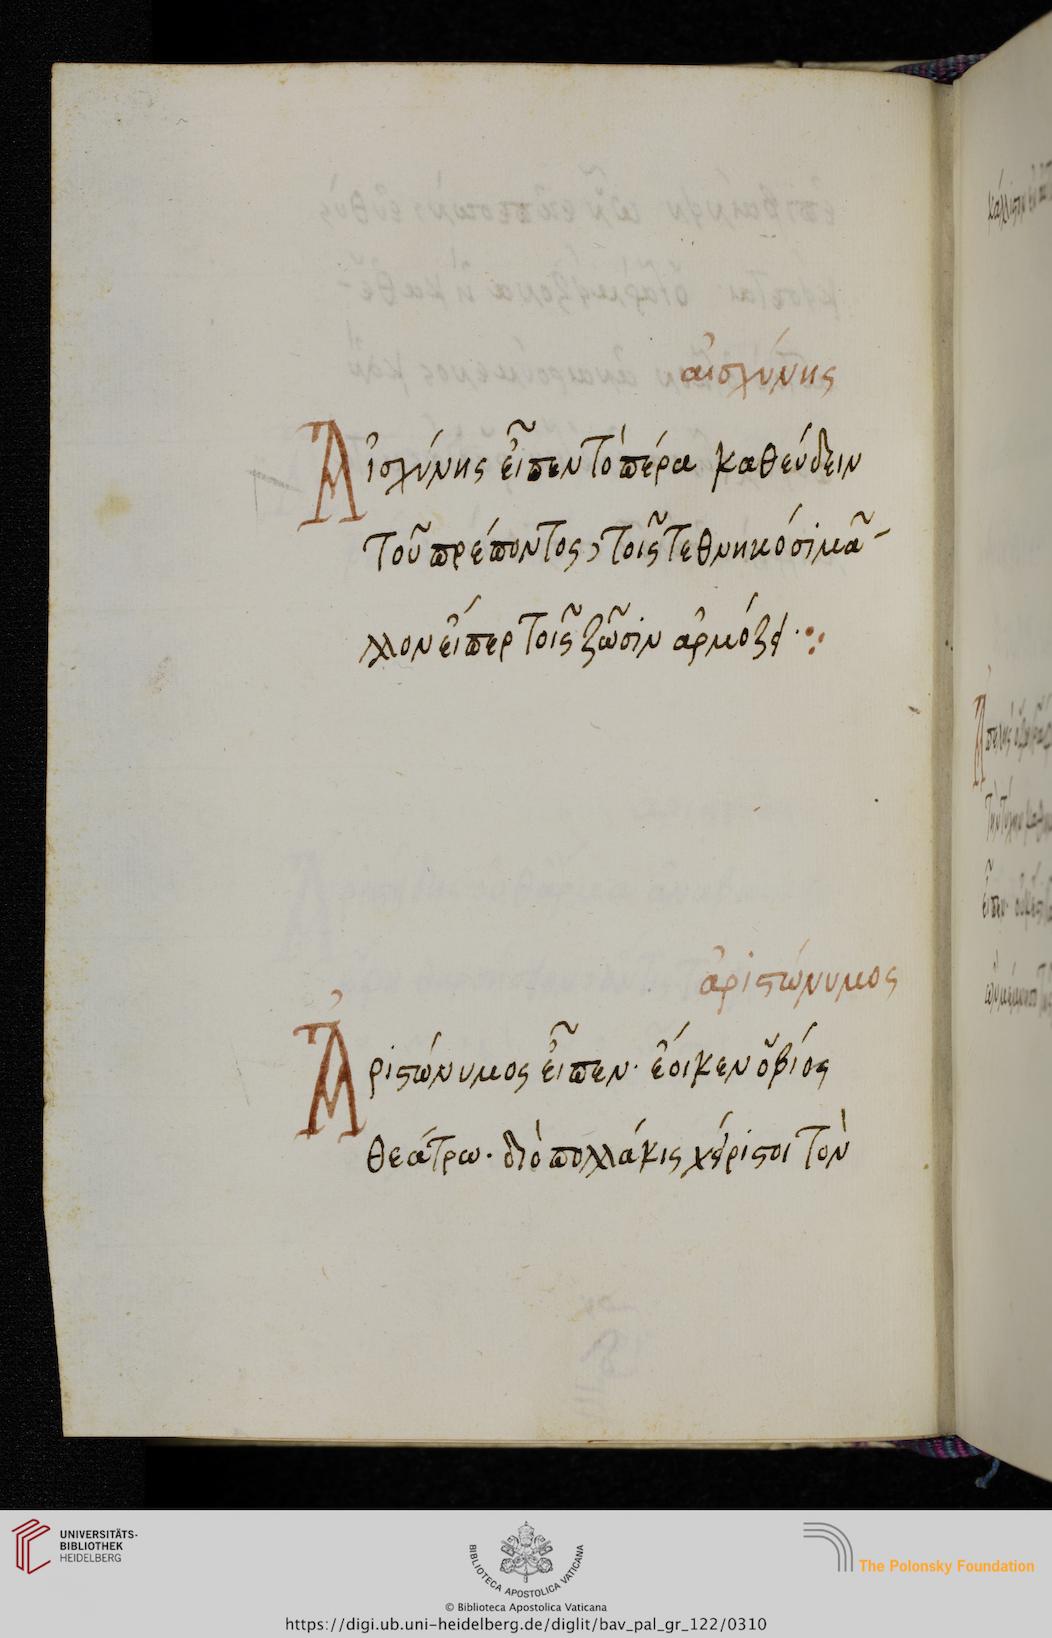 αἰσχύνης
Αἰσχύνης εἶπεν τὸ πέρα καθεύδειν
τοῦ πρέποντος, τοῖς τεθνηκόσι μᾶ-
λλον εἴπερ τοῖς ζῶσιν ἁρμόζει
ἀριστώνυμος
Ἀριστώνυμος εἶπεν· ἔοικεν ὁ βίος
θεάτρω· διὸ πολλάκις χείριστοι τὸν
UNIVERSITÄTS-
BIBLIOTHEK
HEIDELBERG
BIBLIOTECA APOSTOLICA VATICANA
The Polonsky Foundation
© Biblioteca Apostolica Vaticana
https://digi.ub.uni-heidelberg.de/diglit/bav_pal_gr_122/0310